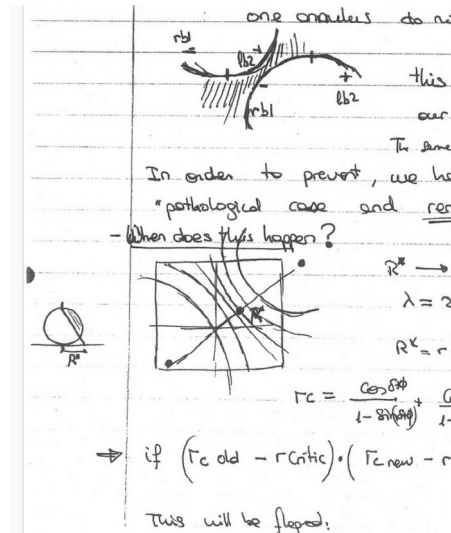 one annulus do n
rb1
lb2
this
rb1
lb2
our
The same
In order to prevent, we he
"pathological case and re
- When does this happen?
R* →
R*
λ = 2
R*
R* = r
rc = cos δφ / 1 - sin(δφ) +
1-
⇒ if (rc old - rcritic) · (rc new - r
This will be flaged: